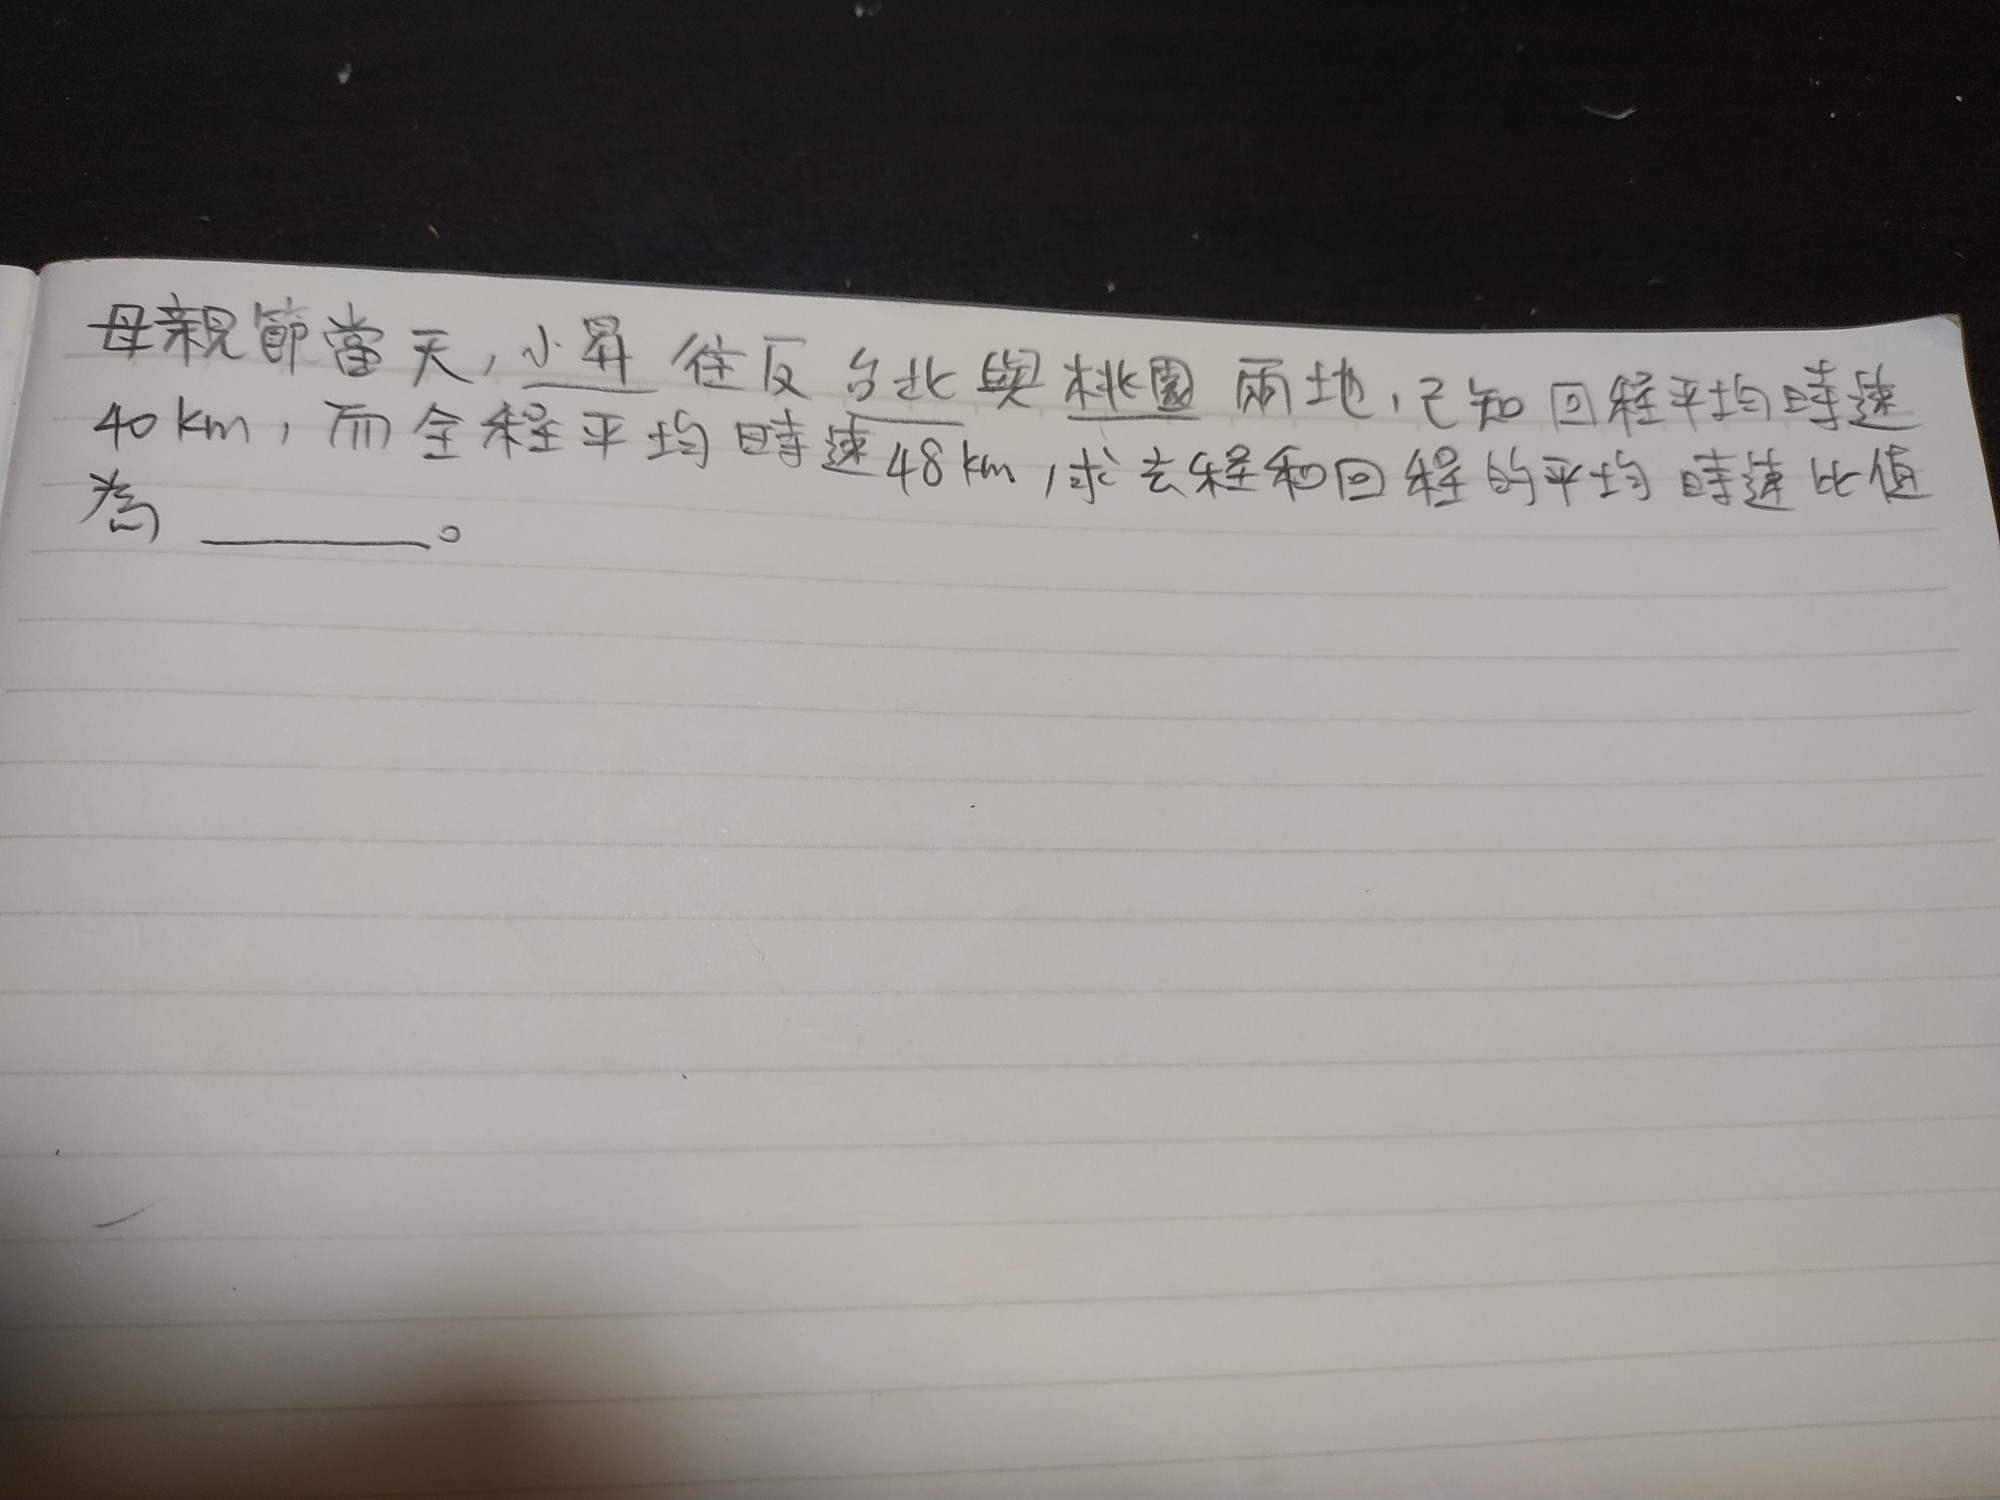 母親節當天,小昇往反台北與桃園兩地,已知回程平均時速
40km,而全程平均時速48km,求去程和回程的平均時速比值
為______。